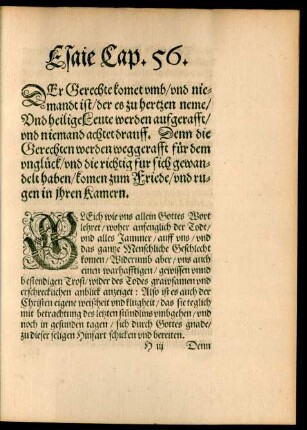 Esaie Cap. 56.
DEr Gerechte komet vmb/ vnd nie-
mandt ist/ der es zu hertzen neme/
Vnd heilige Leute werden auffgerafft/
vnd niemand achtet drauff. Denn die
Gerechten werden weggerafft für dem
vnglück/ vnd die richtig fur sich gewan-
delt haben/ komen zum Friede/ vnd ru-
gen in Ihren Kamern.
GLEich wie vns allein Gottes Wort
lehret/ woher anfenglich der Todt/
vnd alles Jammer/ auff vns/ vnd
das gantze Menschliche Geschlecht
komen/ Widerumb aber/ vns auch
einen warhafftigen/ gewissen vnnd
bestendigen Trost/ wider des Todes grawsamen vnd
erschrecklichen anblick anzeiget: Also ist es auch der
Christen eigene weißheit vnd klugheit/ das sie teglich
mit betrachtung des letzten stündlins vmbgehen/ vnd
noch in gesunden tagen/ sich durch Gottes gnade/
zu dieser seligen Hinfart schicken vnd bereiten.
H iij Denn